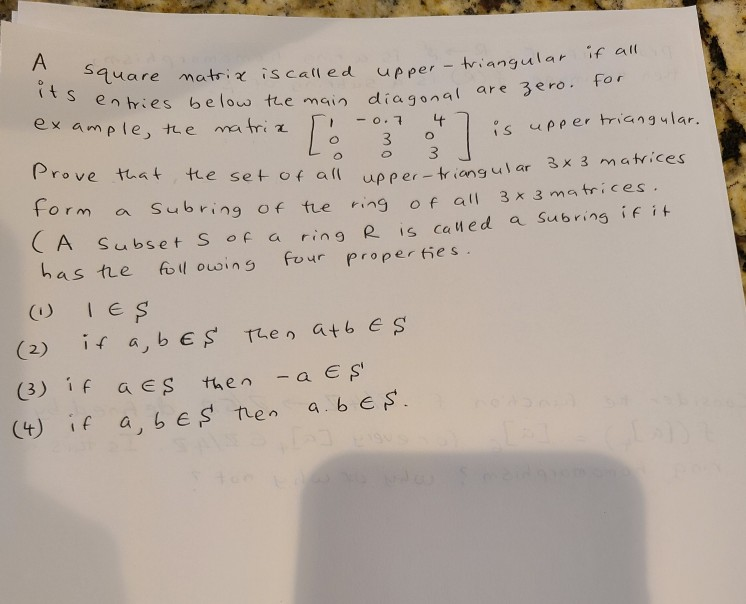 A square matrix is called upper-triangular if all
its entries below the main diagonal are zero. For
example, the matrix [1 -0.7 4
0 3 0
0 0 3] is upper triangular.
Prove that the set of all upper-triangular 3x3 matrices
form a subring of the ring of all 3x3 matrices.
(A subset S of a ring R is called a subring if it
has the following four properties.
(1) 1 ∈ S
(2) if a, b ∈ S then a+b ∈ S
(3) if a ∈ S then -a ∈ S
(4) if a, b ∈ S then a.b ∈ S.